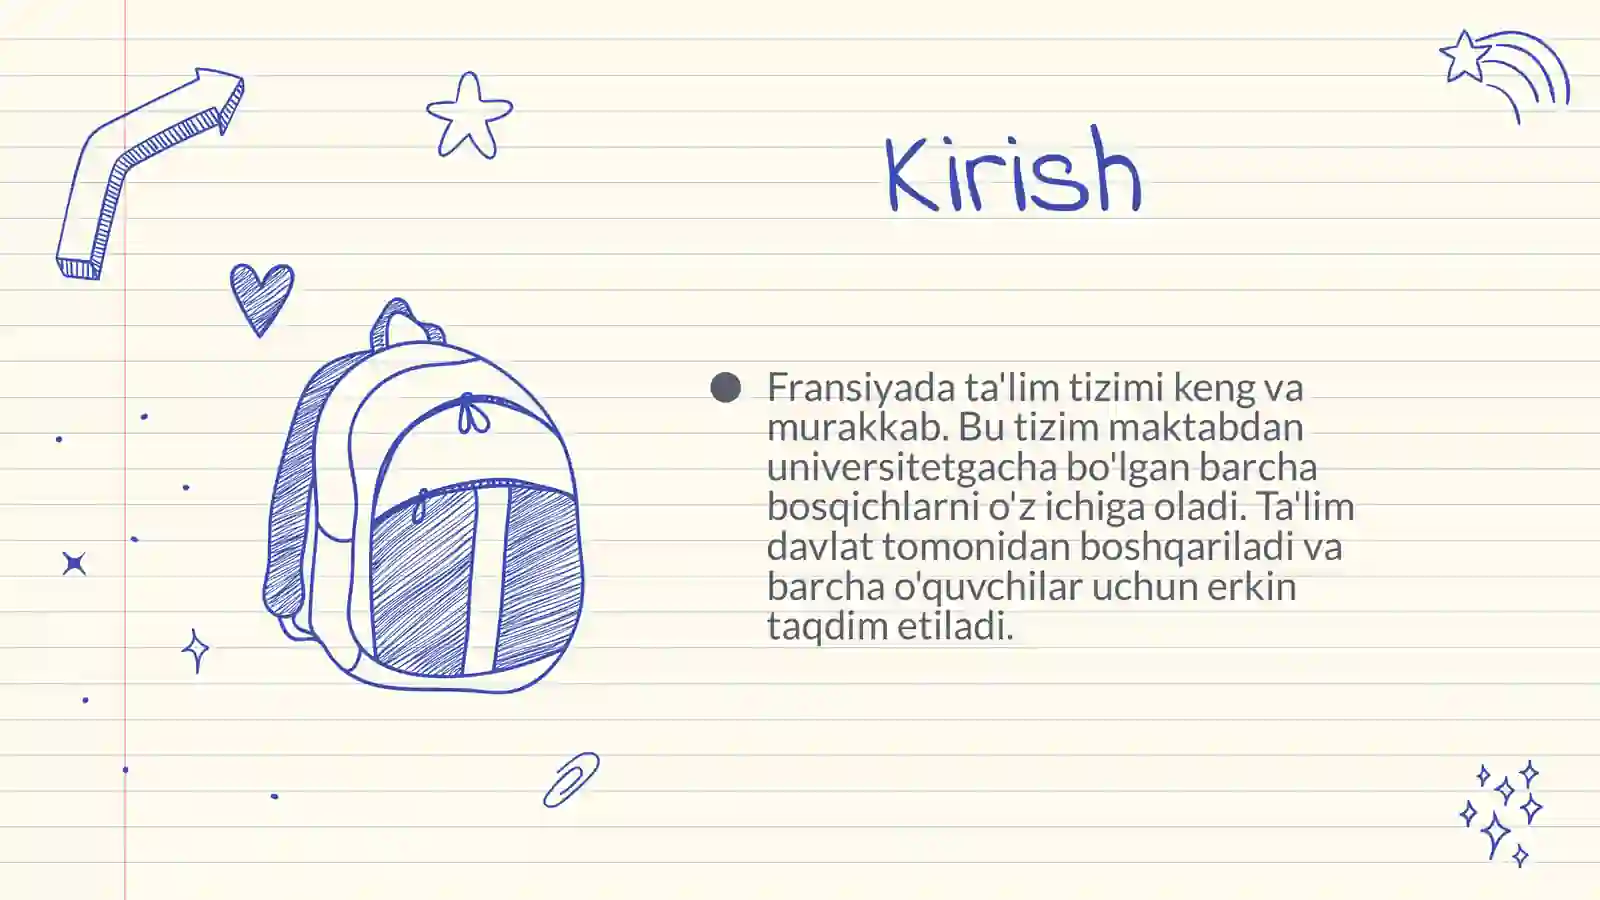 Kirish
Fransiyada ta'lim tizimi keng va
murakkab. Bu tizim maktabdan
universitetgacha bo'lgan barcha
bosqichlarni o'z ichiga oladi. Ta'lim
davlat tomonidan boshqariladi va
barcha o'quvchilar uchun erkin
taqdim etiladi.